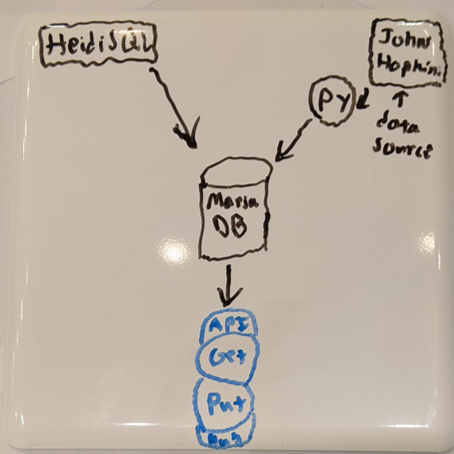 HeidiSQL
John
Hopkins
PY
data
source
Maria
DB
API
Get
Put